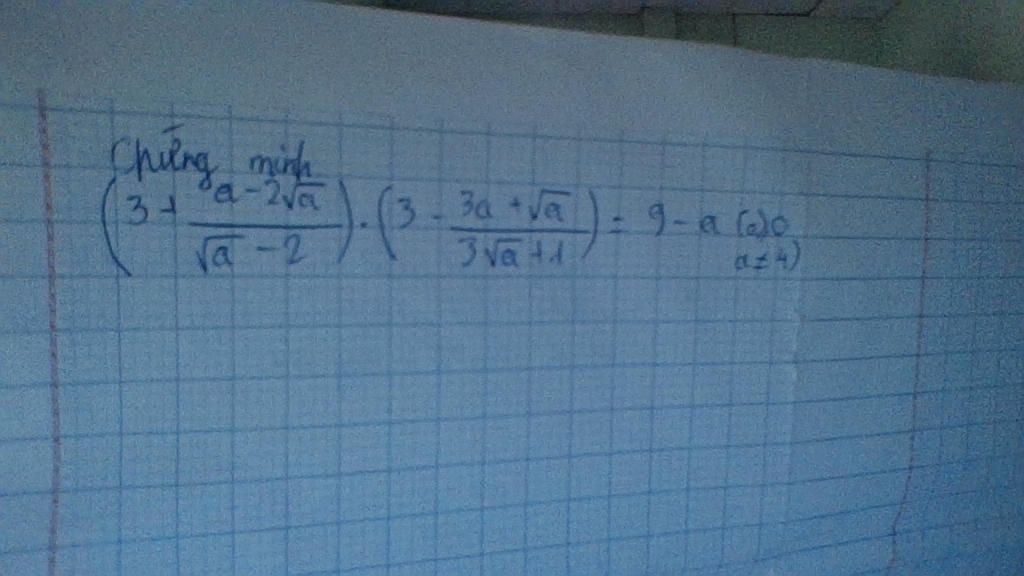 Chứng minh
(3 + (a - 2√a)/(√a - 2)) . (3 - (3a + √a)/(3√a + 1)) = 9 - a (a > 0
a ≠ 4)